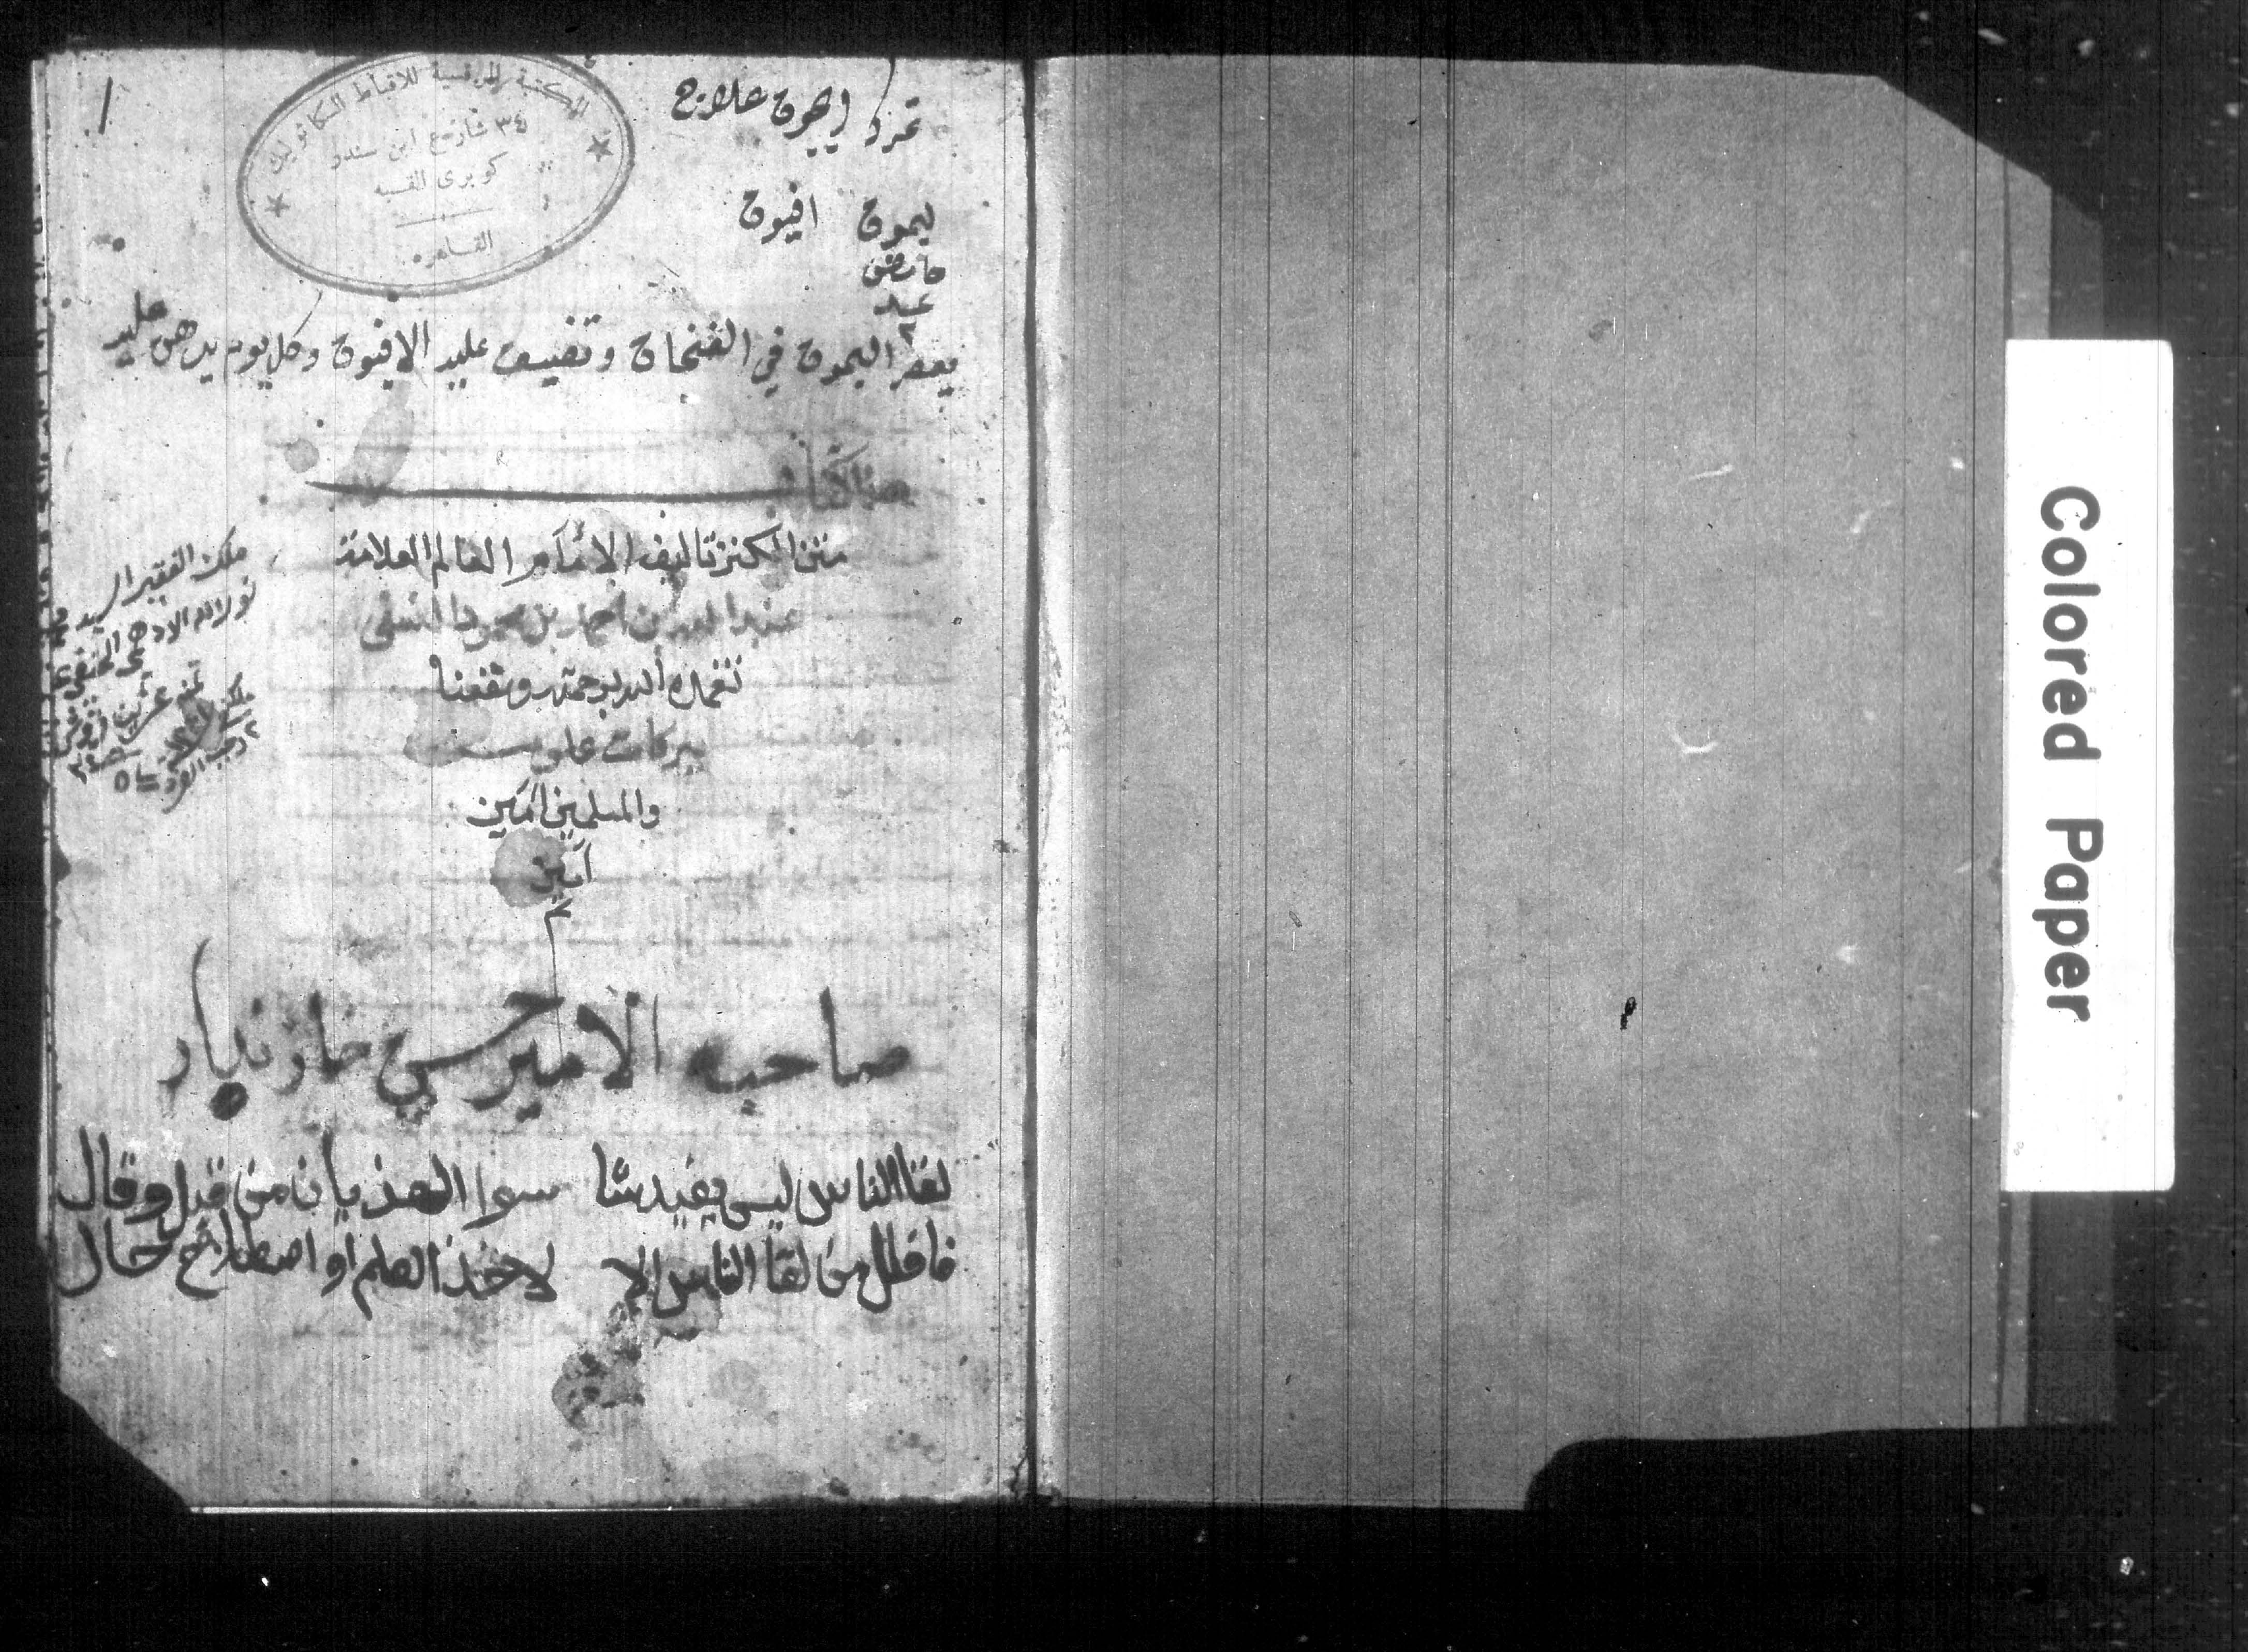 ١
المكتبة المرقسية للاقباط الكاثوليك
٣٤ شارع ابن سندر
كوبرى القبه
القاهرة
علاج
ليمون افيون
حامض
عدد
٢
يعصر اليمون في الفنجان وتضيف عليه الافيون وكل يوم يدهن عليه
هذا كتاب
متن الكنز تاليف الامام العالم العلامة
عبد الله بن احمد بن محمود النسفي
تغمده الله برحمته ونفعنا
ببركات علومه
والمسلمين امين
امين
م
ملك الفقير السيد
الحنفي
صاحبه الامير حسين خازندار
لقا الناس ليس يفيد شا سوا الهذيان من قيل وقال
فاقلل من لقا الناس الا لاخذ العلم او اصطلاح حال
Colored Paper